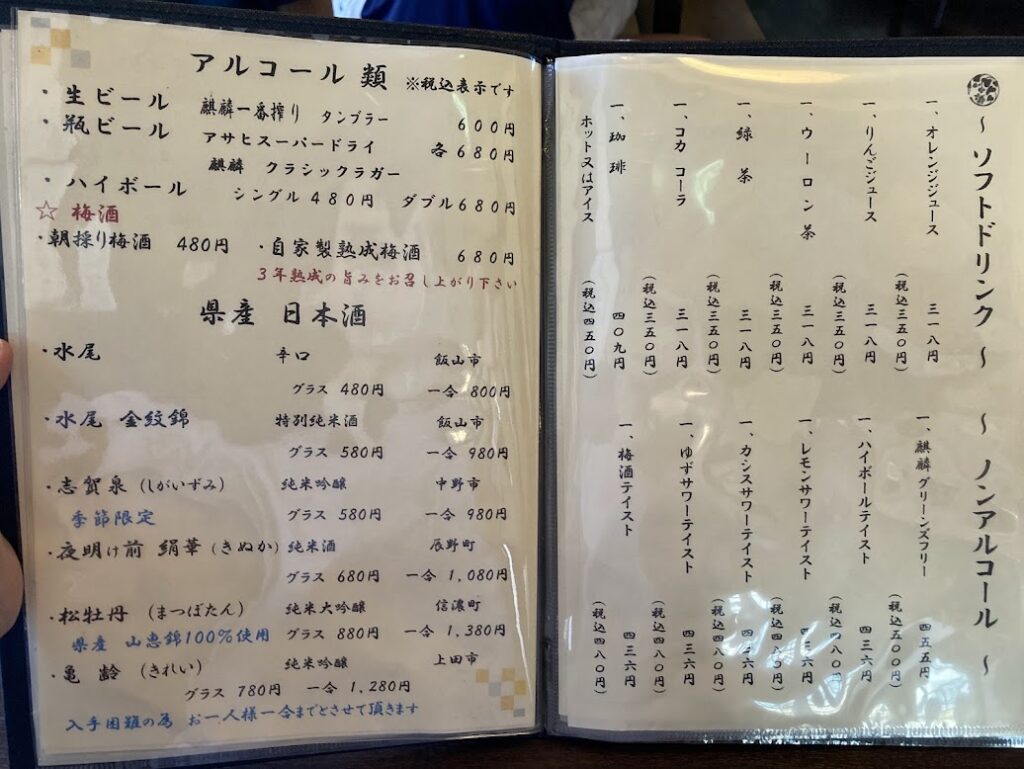 アルコール 類 ※税込表示です
・生ビール 麒麟一番搾り タンブラー 600円
・瓶ビール アサヒスーパードライ 各680円
麒麟 クラシックラガー
・ハイボール シングル 480円 ダブル680円
☆ 梅酒
・朝採り梅酒 480円 ・自家製熟成梅酒 680円
3年熟成の旨みをお召し上がり下さい
県産 日本酒
・水尾 辛口 飯山市
グラス 480円 一合 800円
・水尾 金紋錦 特別純米酒 飯山市
グラス 580円 一合 980円
・志賀泉（しがいずみ） 純米吟醸 中野市
季節限定 グラス 580円 一合 980円
・夜明け前 絹華（きぬか） 純米酒 辰野町
グラス 680円 一合 1,080円
・松牡丹 （まつぼたん） 純米大吟醸 信濃町
県産 山恵錦100%使用 グラス 880円 一合 1,380円
・亀 齢 （きれい） 純米吟醸 上田市
グラス 780円 一合 1,280円
入手困難の為 お一人様一合までとさせて頂きます
～ ソフトドリンク ～
一、オレンジジュース 三一八円
（税込三五〇円）
一、りんごジュース 三一八円
（税込三五〇円）
一、ウーロン茶 三一八円
（税込三五〇円）
一、緑茶 三一八円
（税込三五〇円）
一、コカ コーラ 三一八円
（税込三五〇円）
一、珈琲 四〇九円
ホット又はアイス （税込四五〇円）
～ ノンアルコール ～
一、麒麟 グリーンズフリー 四五五円
（税込五〇〇円）
一、ハイボールテイスト 四三六円
（税込四八〇円）
一、レモンサワーテイスト 四三六円
（税込四八〇円）
一、カシスサワーテイスト 四三六円
（税込四八〇円）
一、ゆずサワーテイスト 四三六円
（税込四八〇円）
一、梅酒テイスト 四三六円
（税込四八〇円）